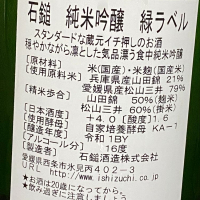 石鎚　純米吟醸　緑ラベル
スタンダードな蔵元イチ押しのお酒
穏やかながら凛とした気品漂う食中純米吟醸
[原材料]　米(国産米)・米麹(国産米)
[使用原料米]　兵庫県産山田錦　21%
愛媛県産松山三井　79%
[精米歩合]　山田錦　50%(麹米)
松山三井　60%(掛米)
[日本酒度]　+4.0　[酸度]　1.6
[使用酵母]　自家培養酵母　KA-1
[醸造年度]　令和1BY
[アルコール分]　16度
[製造者]　石鎚酒造株式会社
愛媛県西条市氷見丙402-3
URL http://www.ishizuchi.co.jp
★お酒は20歳になってから。
★飲み過ぎに注意しましょう